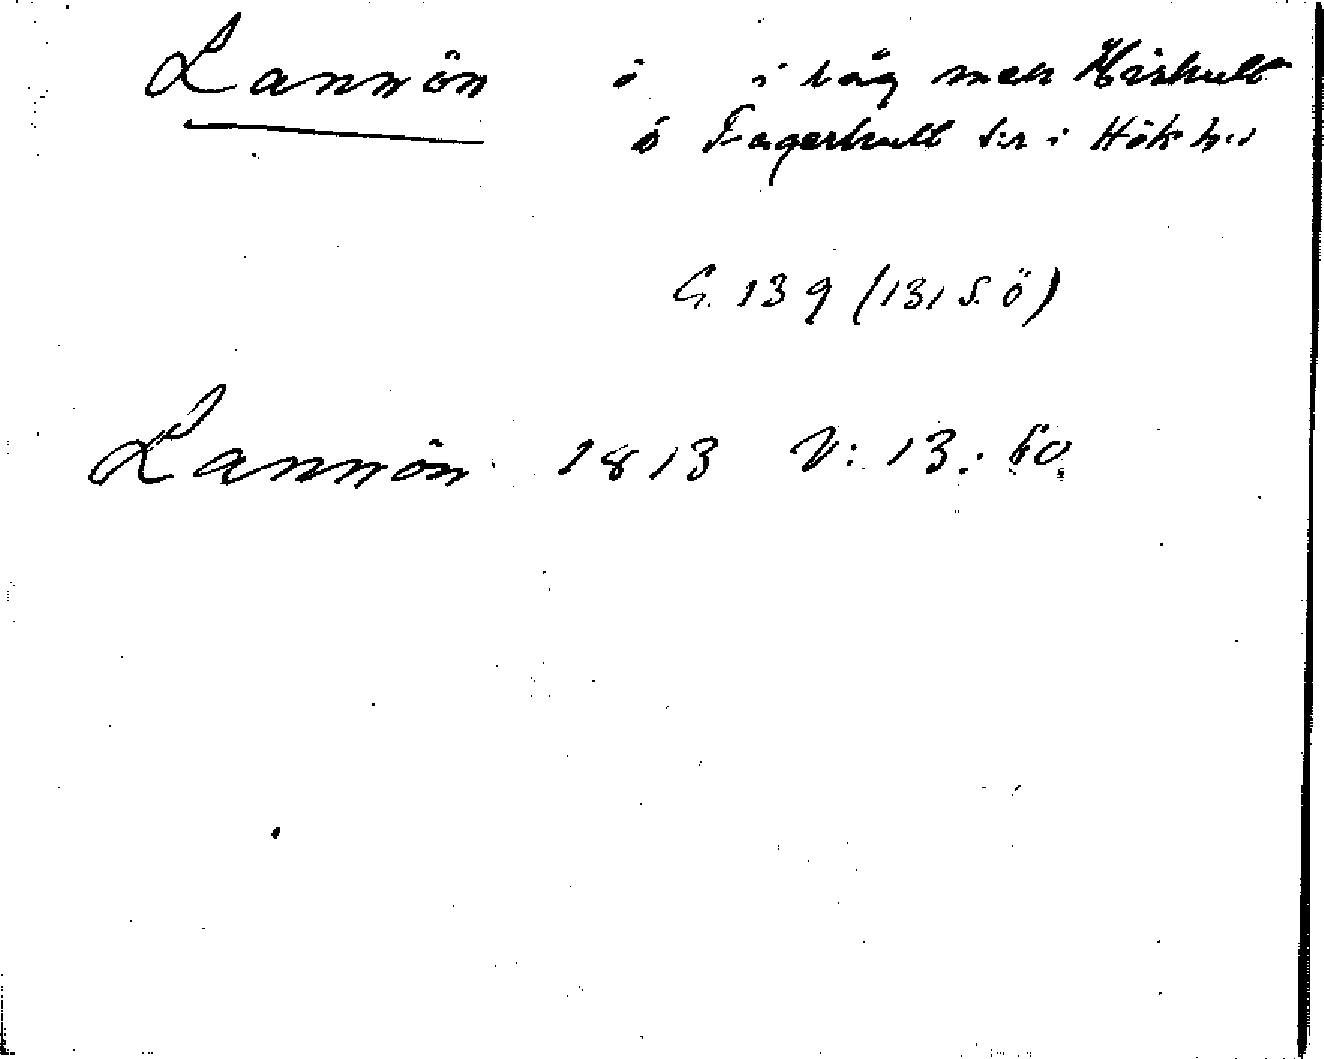 Lannön ö i tåg med Hishult
ö Fagerhult s:r i Höks h:d
G. 139 (131 S.Ö)
Lannön 1813 V: 13: 60